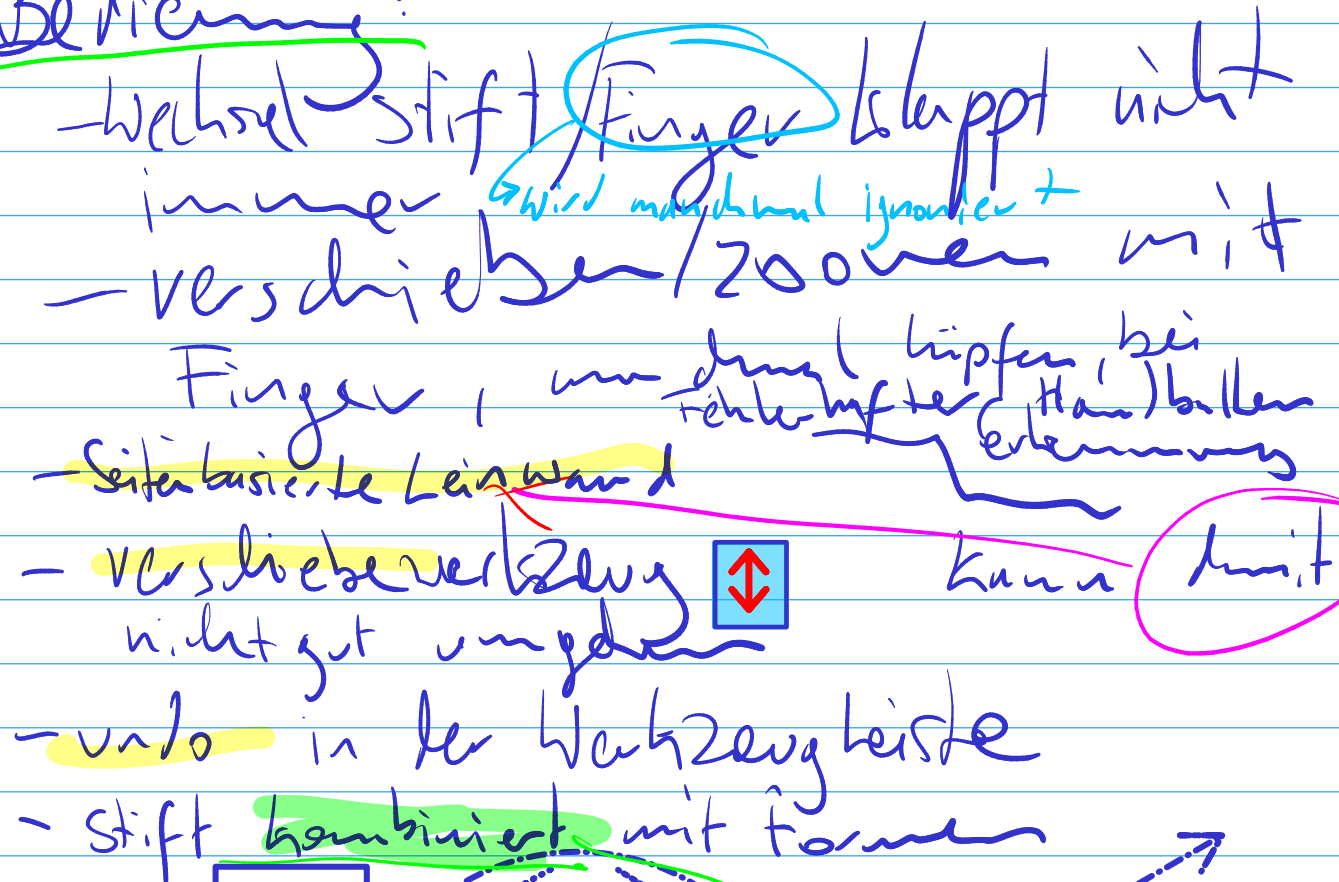 Bedienung:
- Wechsel Stift / Finger klappt nicht
immer
wird manchmal ignoriert
- verschieben / zoomen mit
Finger, um
hüpfen, bei
fehlerhafter Handballen
erkennung
- Seitenbasierte Leinwand
- Verschiebewerkzeug kann damit
nicht gut umgehen
- undo in der Werkzeugleiste
- Stift kombiniert mit Formen